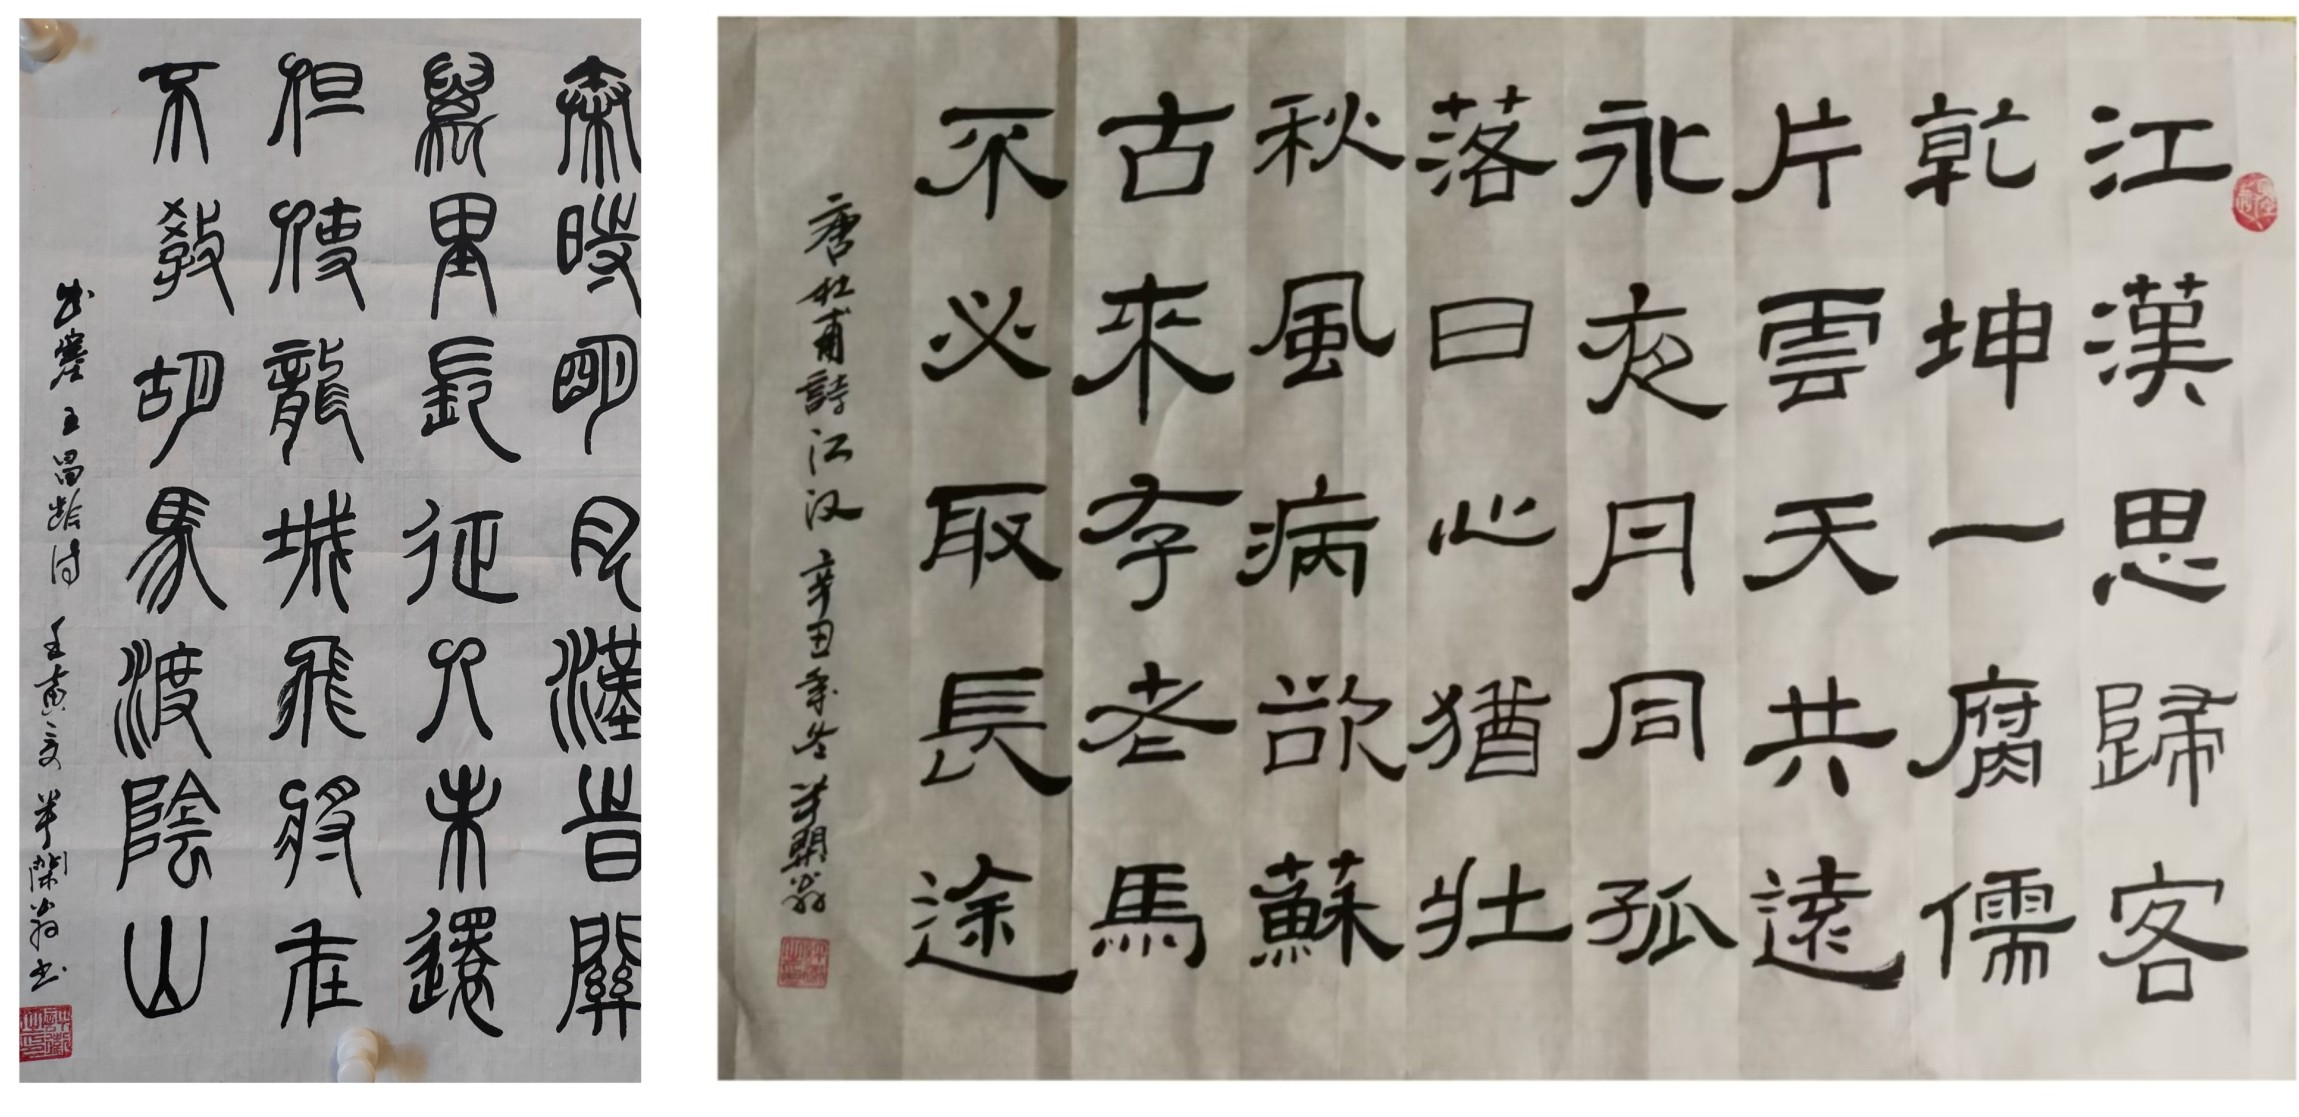 秦時明月漢旹關
萬里長征人未還
但使龍城飛將在
不教胡馬渡陰山
出塞 王昌龄诗 壬寅之夏 半翁书
江漢思歸客
乾坤一腐儒
片雲天共遠
永夜月同孤
落日心猶壯
秋風病欲蘇
古來存老馬
不必取長途
唐杜甫詩江汉 辛丑季冬 半翁